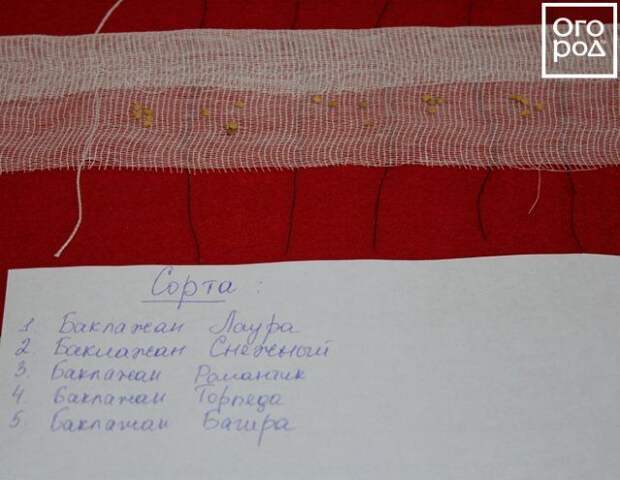 Ого
род
Сорта:
1. Баклажан Лаура
2 Баклажан Снежный
3. Баклажан Романтик
4. Баклажан Торпеда
5. Баклажан Багира